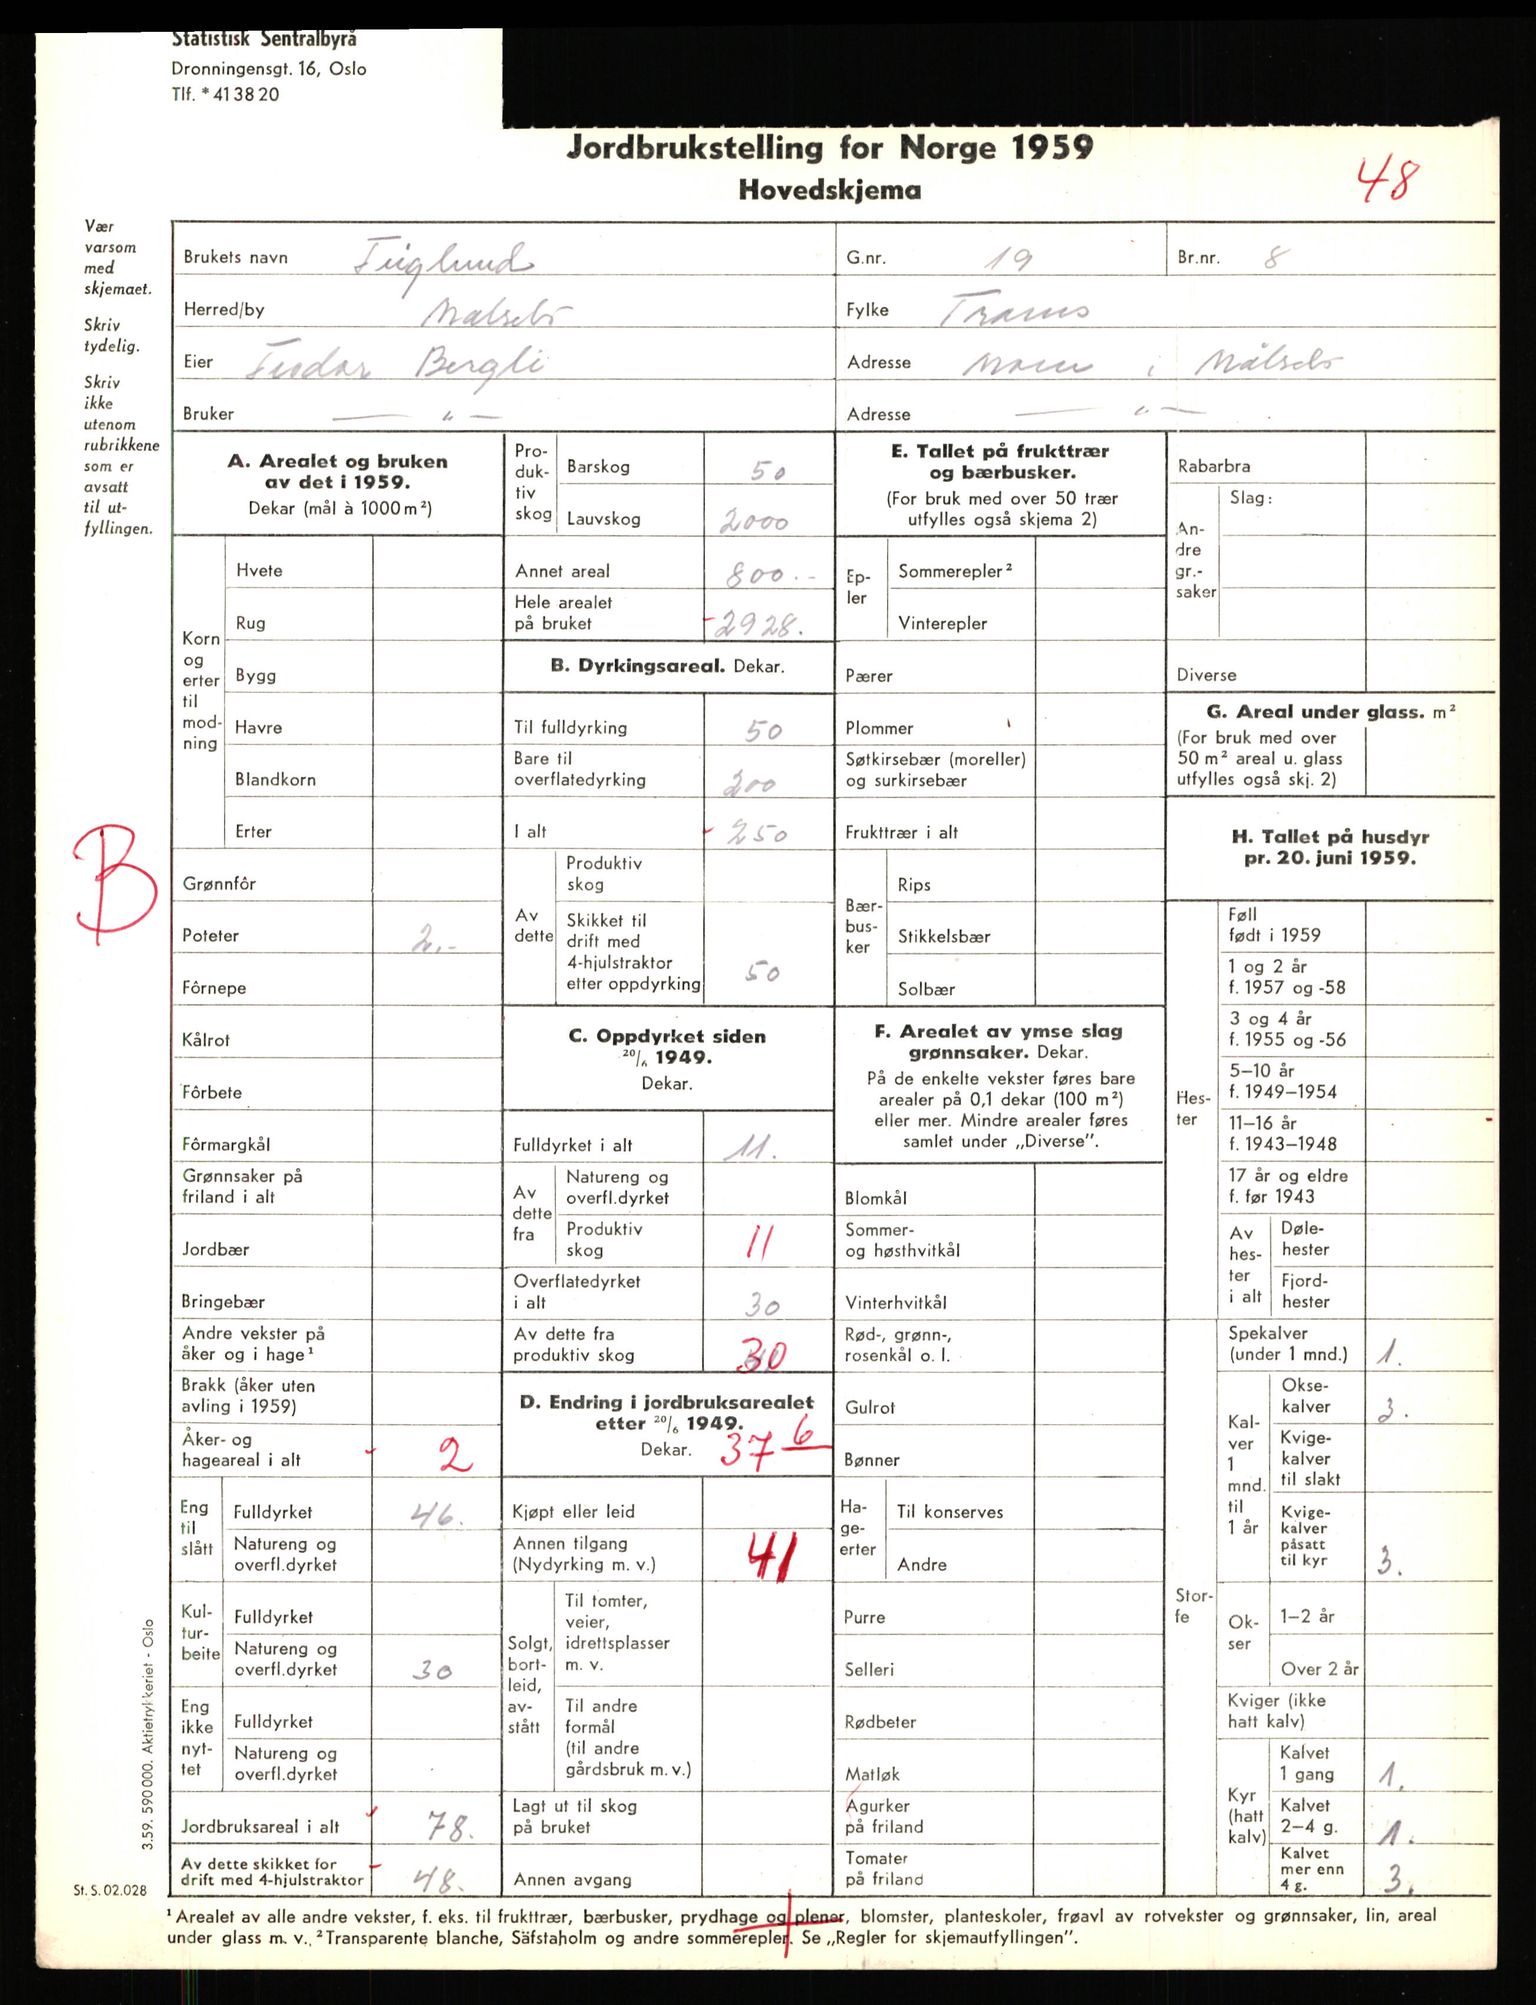 Statistisk Sentralbyrå
Dronningensgt. 16, Oslo
Tlf. * 41 38 20
Jordbrukstelling for Norge 1959
Hovedskjema
48
Vær
varsom
med
skjemaet.
Skriv
tydelig.
Skriv
ikke
utenom
rubrikkene
som er
avsatt
til ut-
fyllingen.
B
Brukets navn Fuglund G.nr. 19 Br.nr. 8
Herred/by Målselv Fylke Troms
Eier Bergli Adresse Moen i Målselv
Bruker — „ — Adresse — „ —
A. Arealet og bruken
av det i 1959.
Dekar (mål à 1000 m²)
Korn og erter til mod-ning
Hvete
Rug
Bygg
Havre
Blandkorn
Erter
Grønnfôr
Poteter 2.-
Fôrnepe
Kålrot
Fôrbete
Fôrmargkål
Grønnsaker på
friland i alt
Jordbær
Bringebær
Andre vekster på
åker og i hage¹
Brakk (åker uten
avling i 1959)
Åker- og
hageareal i alt 2
Eng til slått
Fulldyrket 46.
Natureng og
overfl.dyrket
Kul-tur-beite
Fulldyrket
Natureng og
overfl.dyrket 30
Eng ikke nyt-tet
Fulldyrket
Natureng og
overfl.dyrket
Jordbruksareal i alt 78.
Av dette skikket for
drift med 4-hjulstraktor 48.
Pro-duk-tiv skog
Barskog 50
Lauvskog 2000
Annet areal 800.-
Hele arealet
på bruket 2928.
B. Dyrkingsareal. Dekar.
Til fulldyrking 50
Bare til
overflatedyrking 200
I alt 250
Av dette
Produktiv
skog
Skikket til
drift med
4-hjulstraktor
etter oppdyrking 50
C. Oppdyrket siden
20/6 1949.
Dekar.
Fulldyrket i alt 11.
Av dette fra
Natureng og
overfl.dyrket
Produktiv
skog 11
Overflatedyrket
i alt 30
Av dette fra
produktiv skog 30
D. Endring i jordbruksarealet
etter 20/6 1949.
Dekar. 37 6
Kjøpt eller leid
Annen tilgang
(Nydyrking m. v.) 41
Solgt, bort-leid, av-stått
Til tomter,
veier,
idrettsplasser
m. v.
Til andre
formål
(til andre
gårdsbruk m. v.)
Lagt ut til skog
på bruket
Annen avgang
E. Tallet på frukttrær
og bærbusker.
(For bruk med over 50 trær
utfylles også skjema 2)
Ep-ler
Sommerepler²
Vinterepler
Pærer
Plommer
Søtkirsebær (moreller)
og surkirsebær
Frukttrær i alt
Bær-bus-ker
Rips
Stikkelsbær
Solbær
F. Arealet av ymse slag
grønnsaker. Dekar.
På de enkelte vekster føres bare
arealer på 0,1 dekar (100 m²)
eller mer. Mindre arealer føres
samlet under „Diverse”.
Blomkål
Sommer-
og høsthvitkål
Vinterhvitkål
Rød-, grønn-,
rosenkål o. l.
Gulrot
Bønner
Ha-ge-erter
Til konserves
Andre
Purre
Selleri
Rødbeter
Matløk
Agurker
på friland
Tomater
på friland
Rabarbra
An-dre gr.-saker
Slag:
Diverse
G. Areal under glass. m²
(For bruk med over
50 m² areal u. glass
utfylles også skj. 2)
H. Tallet på husdyr
pr. 20. juni 1959.
Hes-ter
Føll
født i 1959
1 og 2 år
f. 1957 og -58
3 og 4 år
f. 1955 og -56
5–10 år
f. 1949–1954
11–16 år
f. 1943–1948
17 år og eldre
f. før 1943
Av hes-ter i alt
Døle-
hester
Fjord-
hester
Stor-fe
Spekalver
(under 1 mnd.) 1.
Kal-ver 1 mnd. til 1 år
Okse-
kalver 3.
Kvige-
kalver
til slakt
Kvige-
kalver
påsatt
til kyr 3.
Ok-ser
1–2 år
Over 2 år
Kviger (ikke
hatt kalv)
Kyr (hatt kalv)
Kalvet
1 gang 1.
Kalvet
2–4 g. 1.
Kalvet
mer enn
4 g. 3.
3.59. 590 000. Aktietrykkeriet - Oslo
St. S. 02.028
¹ Arealet av alle andre vekster, f. eks. til frukttrær, bærbusker, prydhage og plener, blomster, planteskoler, frøavl av rotvekster og grønnsaker, lin, areal
under glass m. v. ² Transparente blanche, Säfstaholm og andre sommerepler. Se „Regler for skjemautfyllingen”.